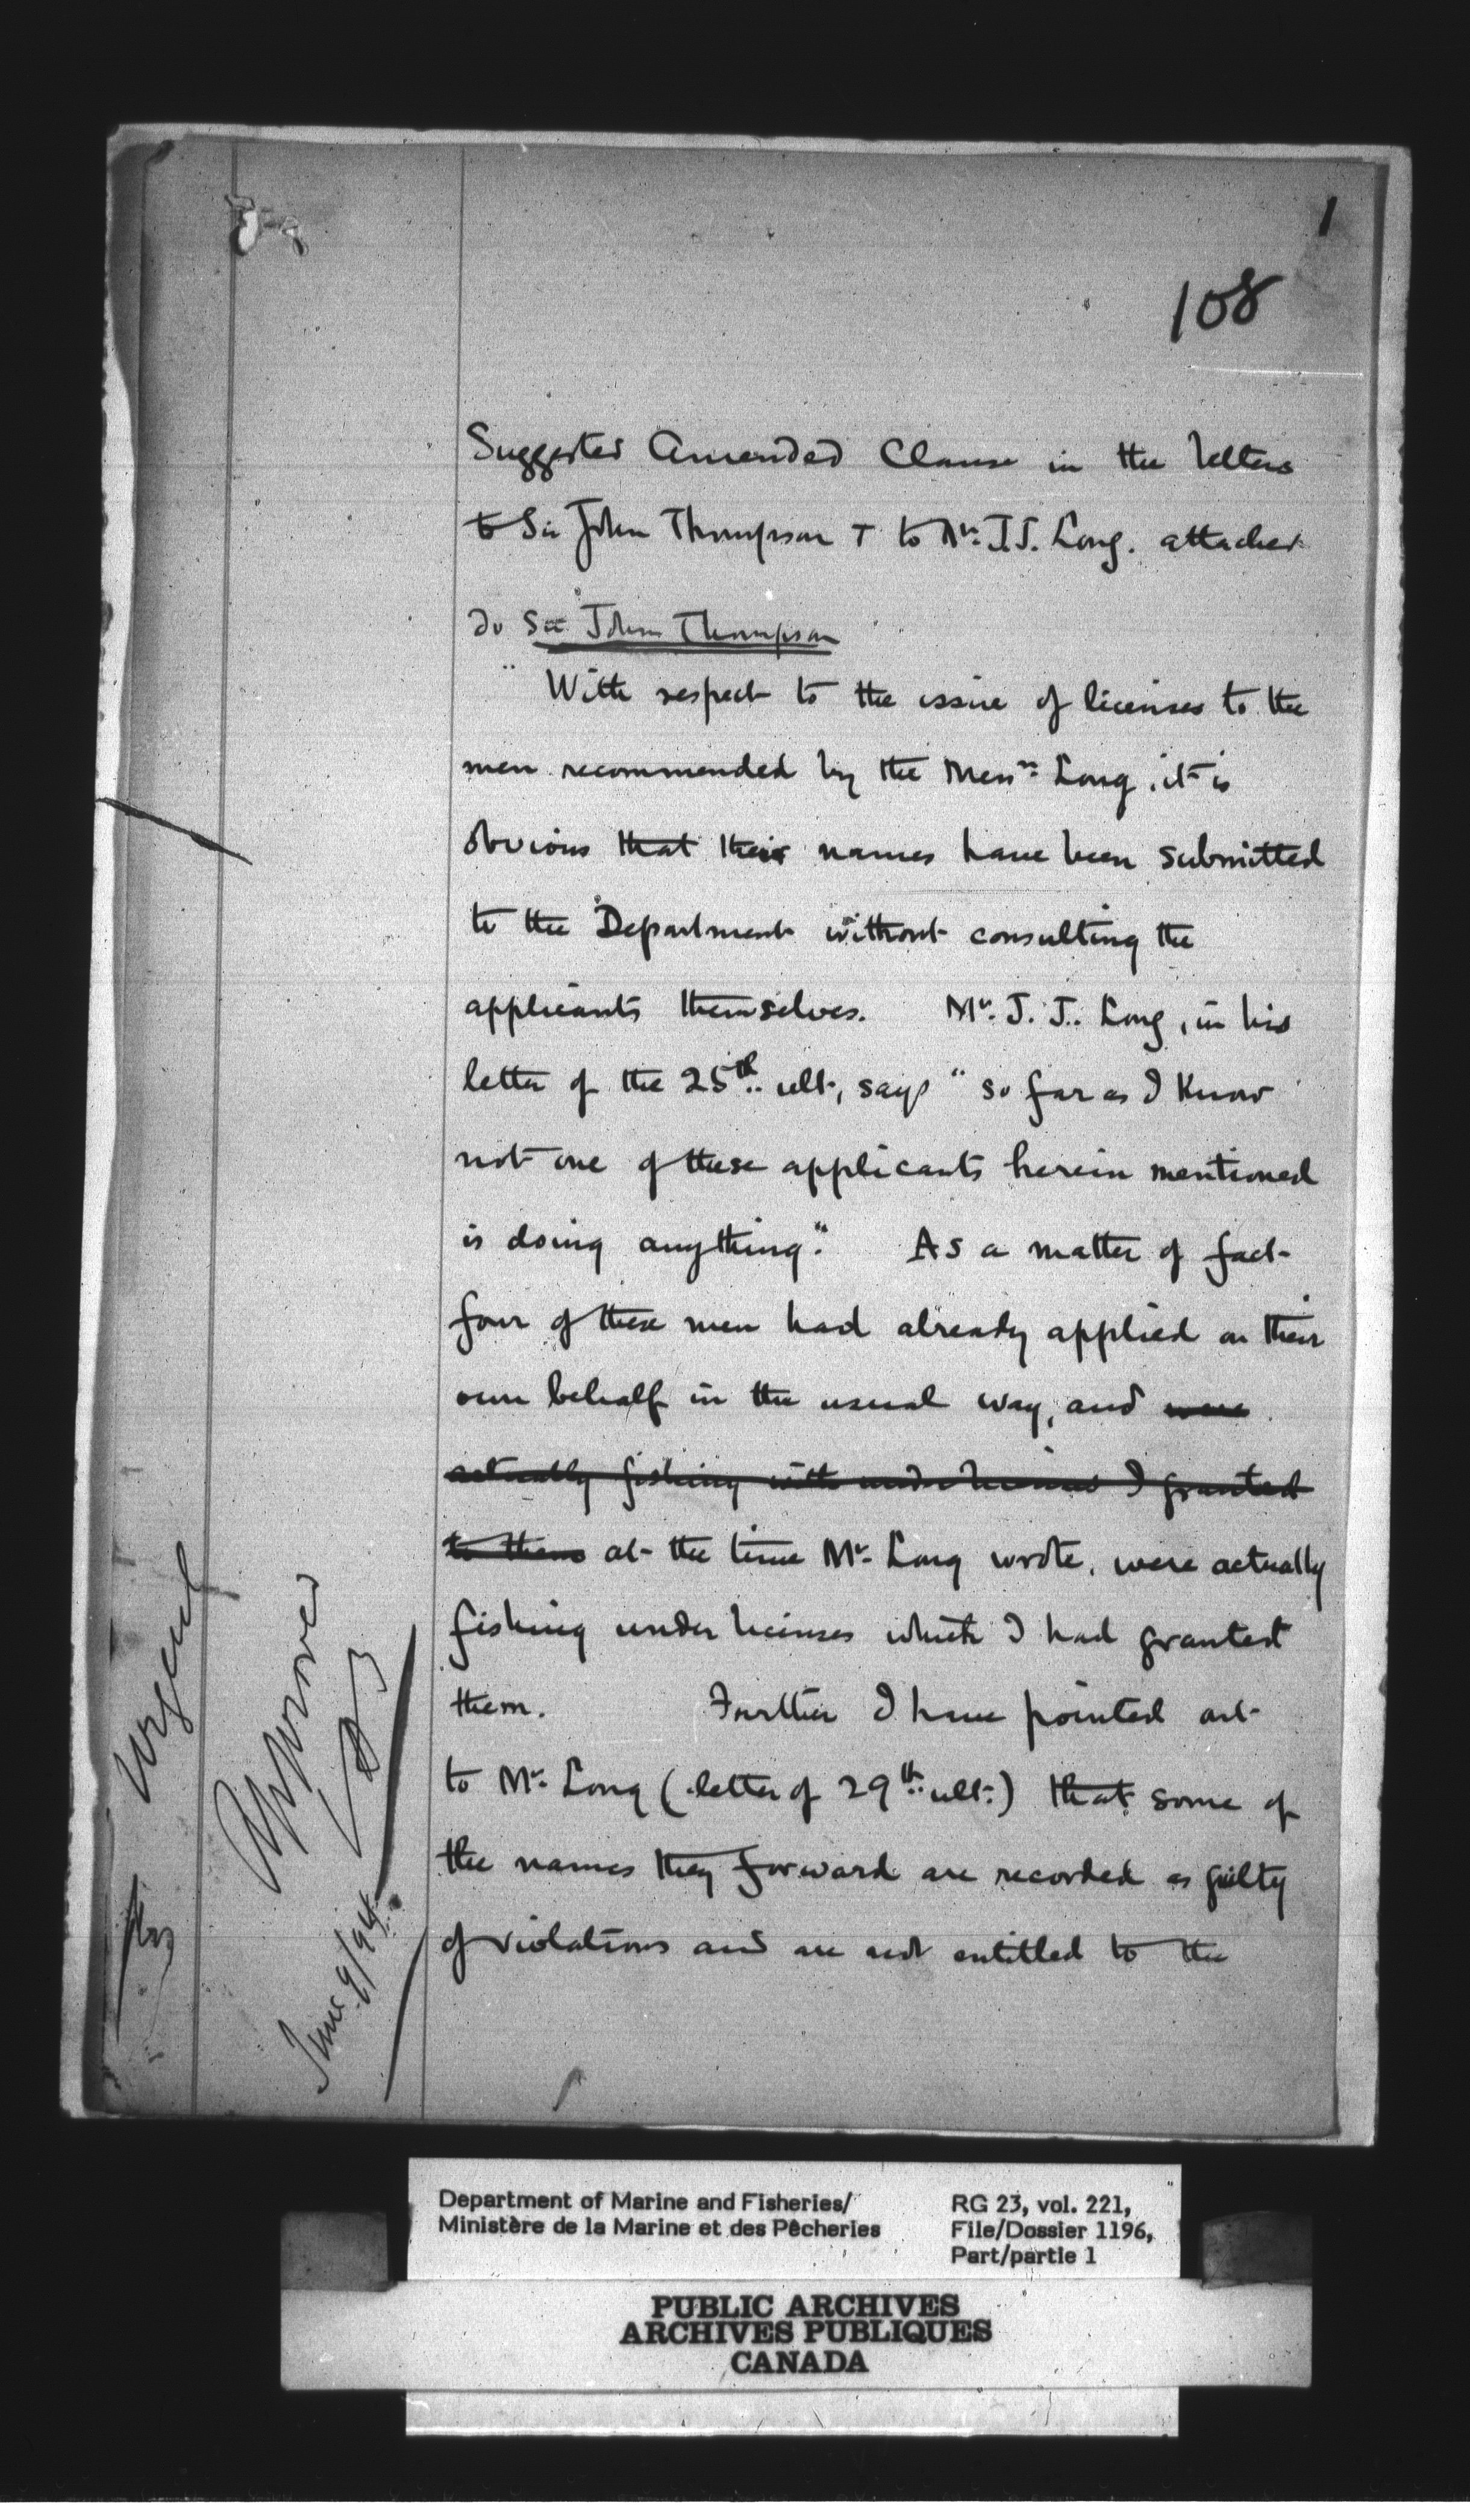 1
108
Suggested Amended Clause in the letters
to Sir John Thompson + to Mr. J.J. Long. attached
To Sir John Thompson
"With respect to the issue of licenses to the
men recommended by the Messrs. Long, it is
obvious that their names have been submitted
to the Department without consulting the
applicants themselves. Mr. J. J. Long, in his
letter of the 25th ult, says "so far as I know
not one of these applicants herein mentioned
is doing anything." As a matter of fact
four of these men had already applied on their
own behalf in the usual way, and were
actually fishing with under licenses I granted
to them at the time Mr. Long wrote, were actually
fishing under licenses which I had granted
them. Further I have pointed out
to Mr. Long (letter of 29th ult.) that some of
the names they forward are recorded as guilty
of violations and are not entitled to the
Urgent
Approved
June 9/94
Department of Marine and Fisheries/
Ministère de la Marine et des Pêcheries
RG 23, vol. 221,
File/Dossier 1196,
Part/partie 1
PUBLIC ARCHIVES
ARCHIVES PUBLIQUES
CANADA